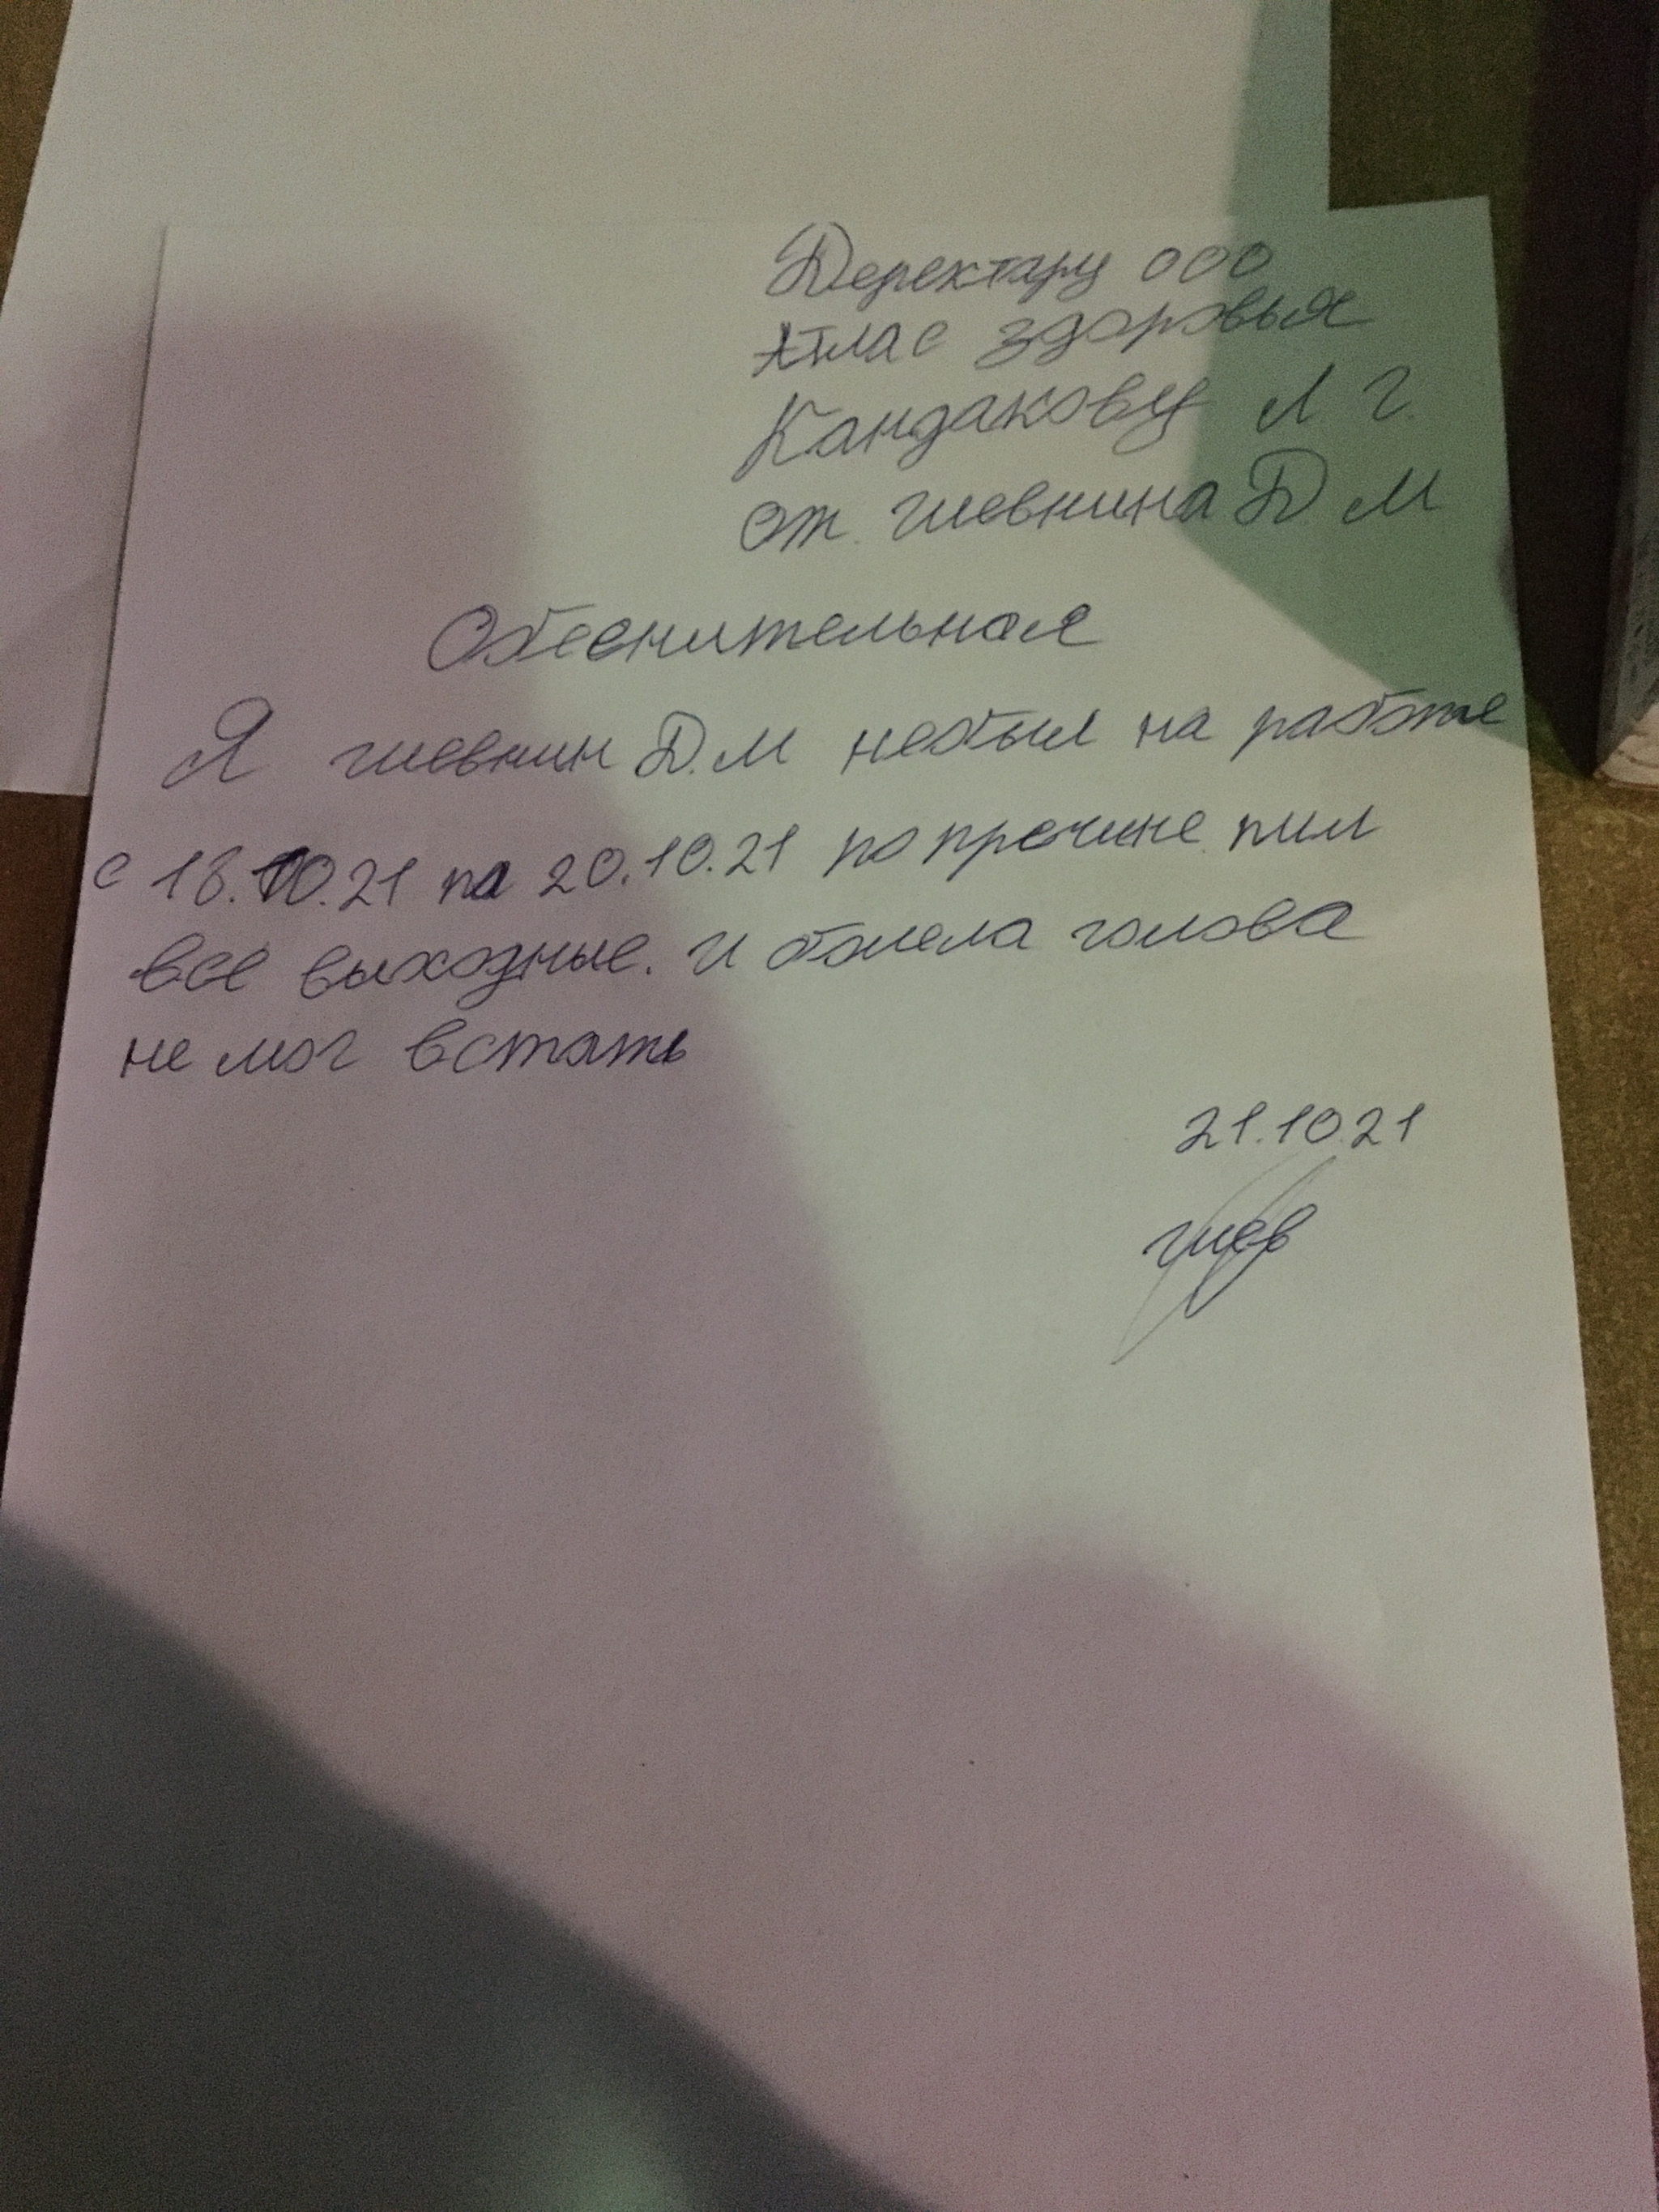 Деректару ООО
Атлас здоровья
Кандакову Л Г.
от. гневнина Д М
Обеснительная
Я гневнин Д.М небыл на работе
с 18.10.21 па 20.10.21 по пречине пил
все выходные. и болела голова
не мог встать
21.10.21
гнев